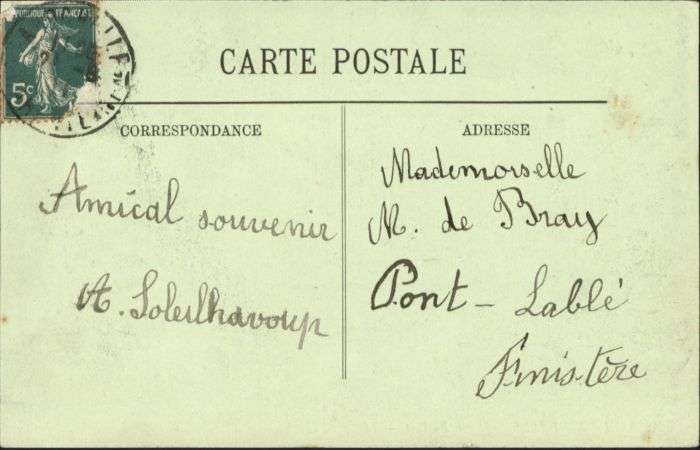 REPUBLIQUE FRANÇAISE
5c
CARTE POSTALE
CORRESPONDANCE
Amical souvenir
A. Soleilhavoup
ADRESSE
Mademoiselle
M. de Bray
Pont-Lablé
Finistère